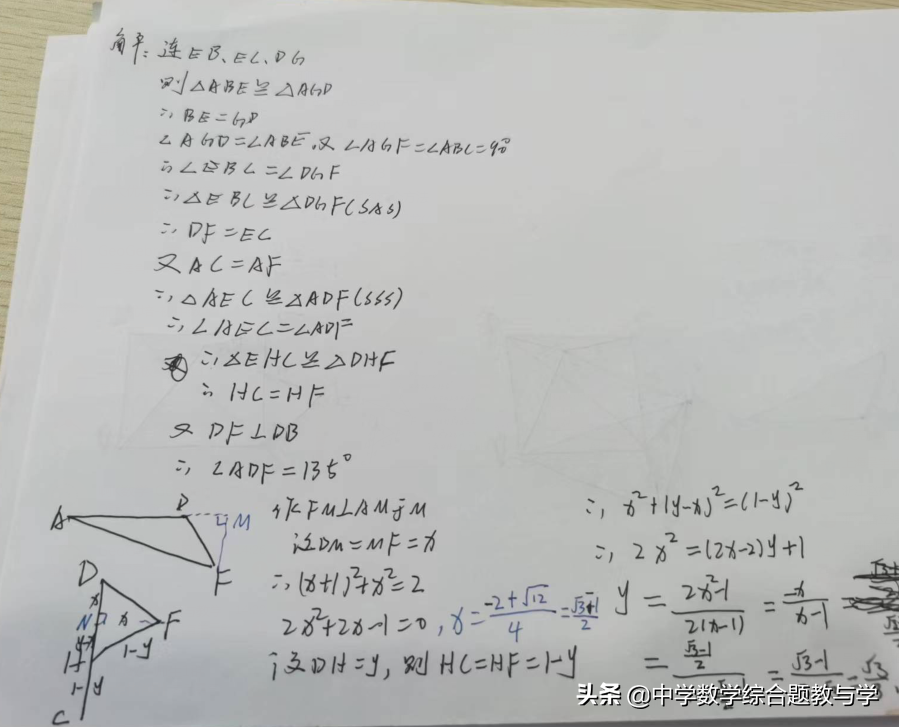 解：连EB、EC、DG
则△ABE≌△AGD
∴BE=GD
∠AGD=∠ABE,又∠AGF=∠ABC=90°
∴∠EBC=∠DGF
∴△EBC≌△DGF(SAS)
∴DF=EC
又AC=AF
∴△AEC≌△ADF(SSS)
∴∠AEC=∠ADF
∴△EHC≌△DHF
∴HC=HF
又DF⊥DB
∴∠ADF=135°
A D M F
作FM⊥AM于M
设DM=MF=x
∴(x+1)²+x²=2
2x²+2x-1=0, x=(-2+√12)/4=(√3-1)/2
设DH=y,则HC=HF=1-y
D x N x F
1-y
1-y
C
∴x²+(y-x)²=(1-y)²
∴2x²=(2x-2)y+1
y=(2x²-1)/(2(x-1))=-x/(x-1)
头条@中学数学综合题教与学